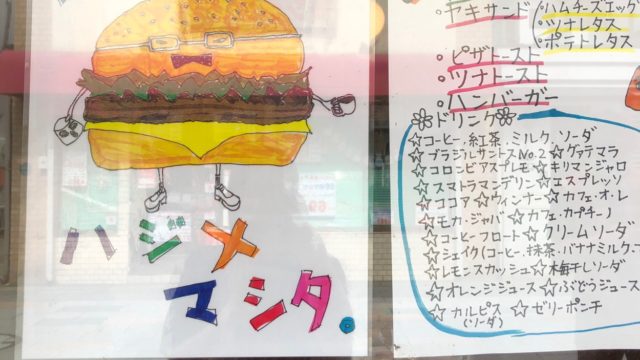 ハジメ
マシタ。
・ヤキサンド
ハムチーズエッグ
・ツナレタス
・ポテトレタス
・ピザトースト
・ツナトースト
・ハンバーガー
ドリンク
☆コーヒー.紅茶.ミルク.ソーダ
☆ブラジルサントスNo.2☆グァテマラ
☆コロンビアスプレモ☆キリマンジャロ
☆スマトラマンデリン☆エスプレッソ
☆ココア☆ウィンナー☆カフェ・オ・レ
☆モカ・ジャバ☆カフェ・カプチーノ
☆コーヒーフロート☆クリームソーダ
☆シェイク(コーヒー.抹茶.バナナミルク
☆レモンスカッシュ☆梅干しソーダ
☆オレンジジュース☆ぶどうジュース
☆カルピス☆ゼリーポンチ
(ソーダ)